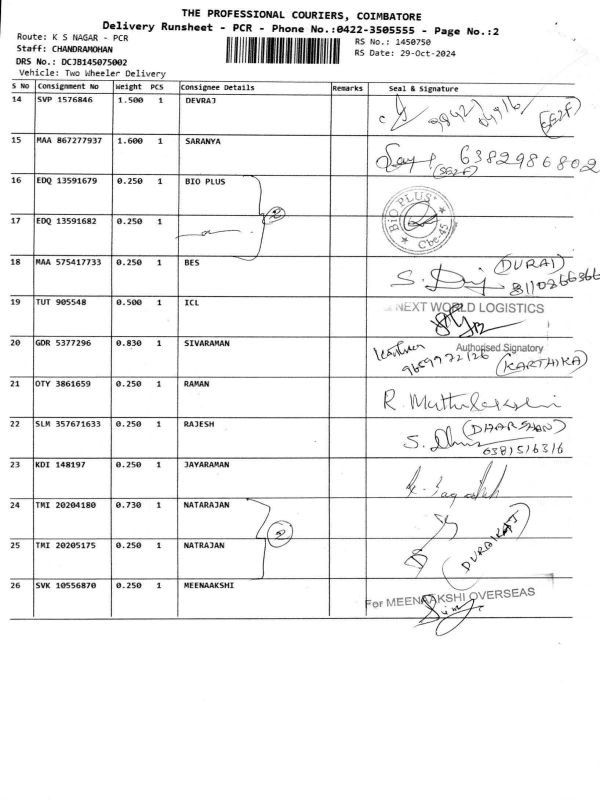 THE PROFESSIONAL COURIERS, COIMBATORE
Delivery Runsheet - PCR - Phone No.:0422-3505555 - Page No.:2
Route: K S NAGAR - PCR
RS No.: 1450750
Staff: CHANDRAMOHAN
RS Date: 29-Oct-2024
DRS No.: DCJB145075002
Vehicle: Two Wheeler Delivery
S No Consignment No Weight PCS Consignee Details Remarks Seal & Signature
14 SVP 1576846 1.500 1 DEVRAJ
15 MAA 867277937 1.600 1 SARANYA
6382986802
16 EDQ 13591679 0.250 1 BIO PLUS
2
BIO PLUS
Cbe-45
17 EDQ 13591682 0.250 1
18 MAA 575417733 0.250 1 BES
(DURAI)
8110866366
19 TUT 905548 0.500 1 ICL
NEXT WORLD LOGISTICS
Authorised Signatory
20 GDR 5377296 0.830 1 SIVARAMAN
9659972126
(KARTHIKA)
21 OTY 3861659 0.250 1 RAMAN
R. Muthulakshmi
22 SLM 357671633 0.250 1 RAJESH
(DHARSHAN)
6381516316
23 KDI 148197 0.250 1 JAYARAMAN
24 TMI 20204180 0.730 1 NATARAJAN
2
25 TMI 20205175 0.250 1 NATRAJAN
26 SVK 10556870 0.250 1 MEENAAKSHI
For MEENAAKSHI OVERSEAS